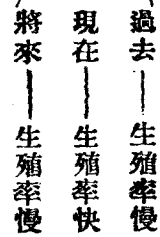 過去——生殖率慢
現在——生殖率快
將來——生殖率慢